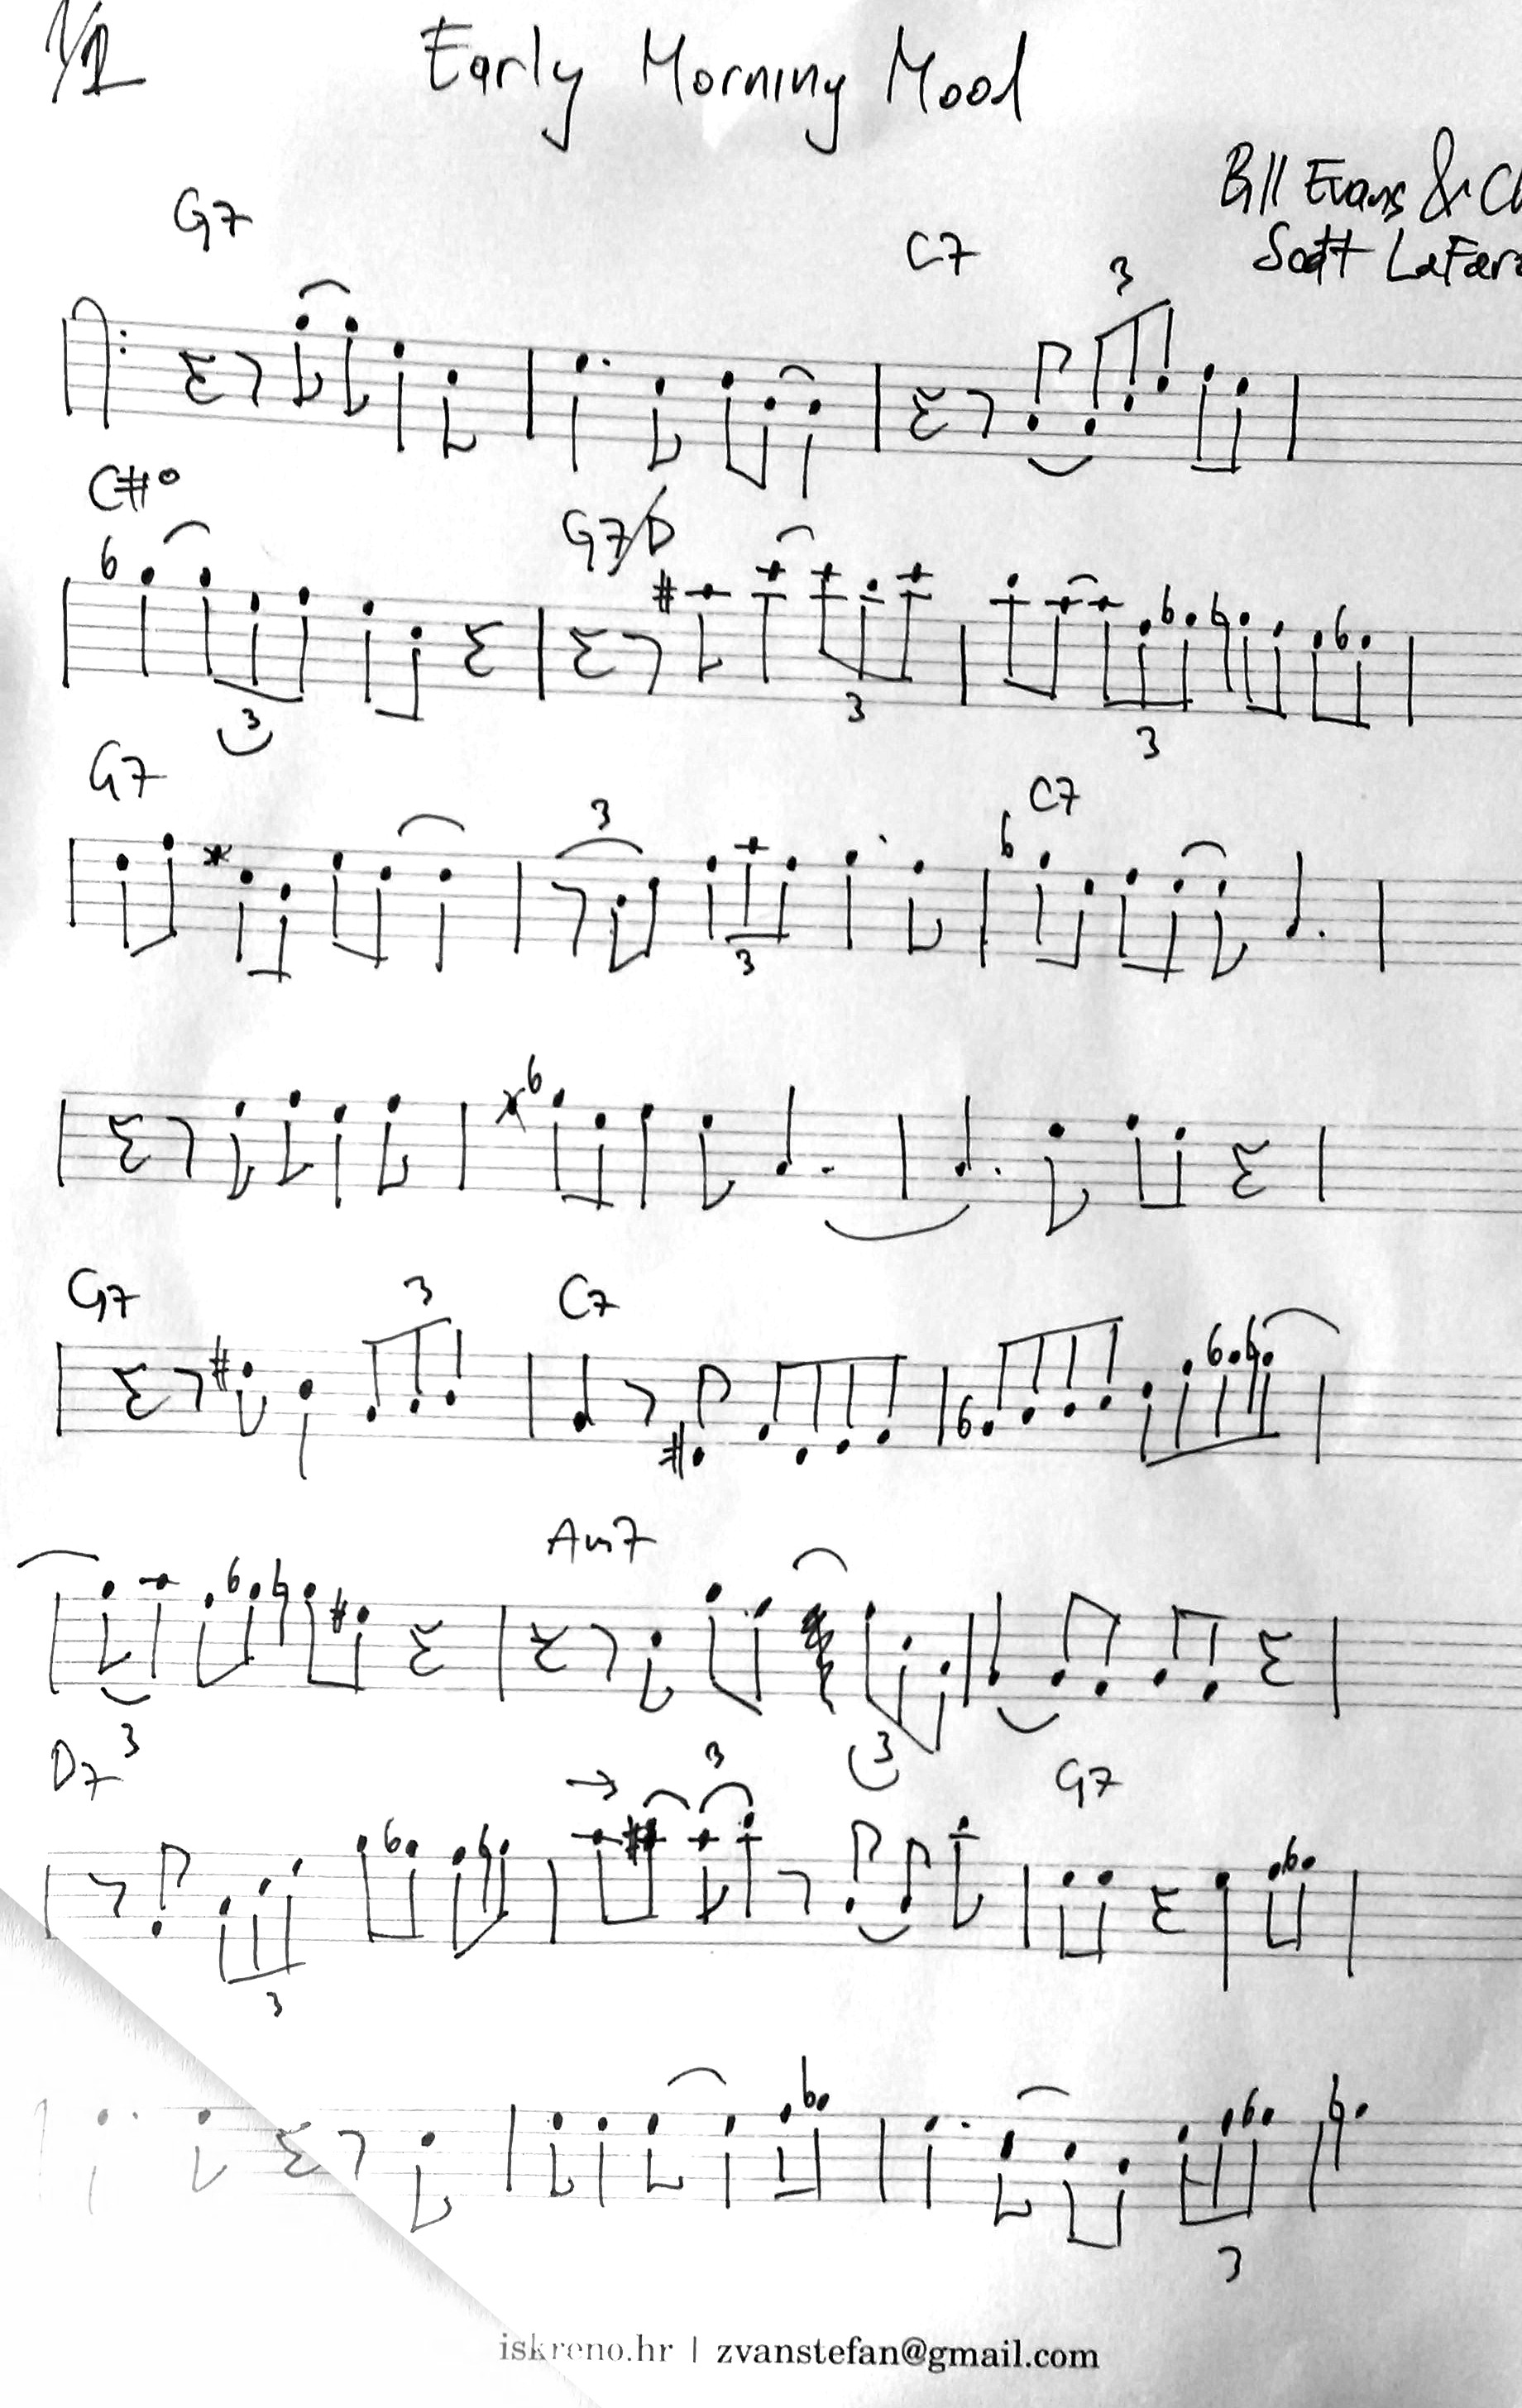 1/2
Early Morning Mood
Bill Evans &
Scott
G7 C7
3
C#° G7/D
3 3 3
G7 C7
3 3
G7 C7
3
Am7
3 3
D7 G7
3 3
3
iskreno.hr | zvanstefan@gmail.com